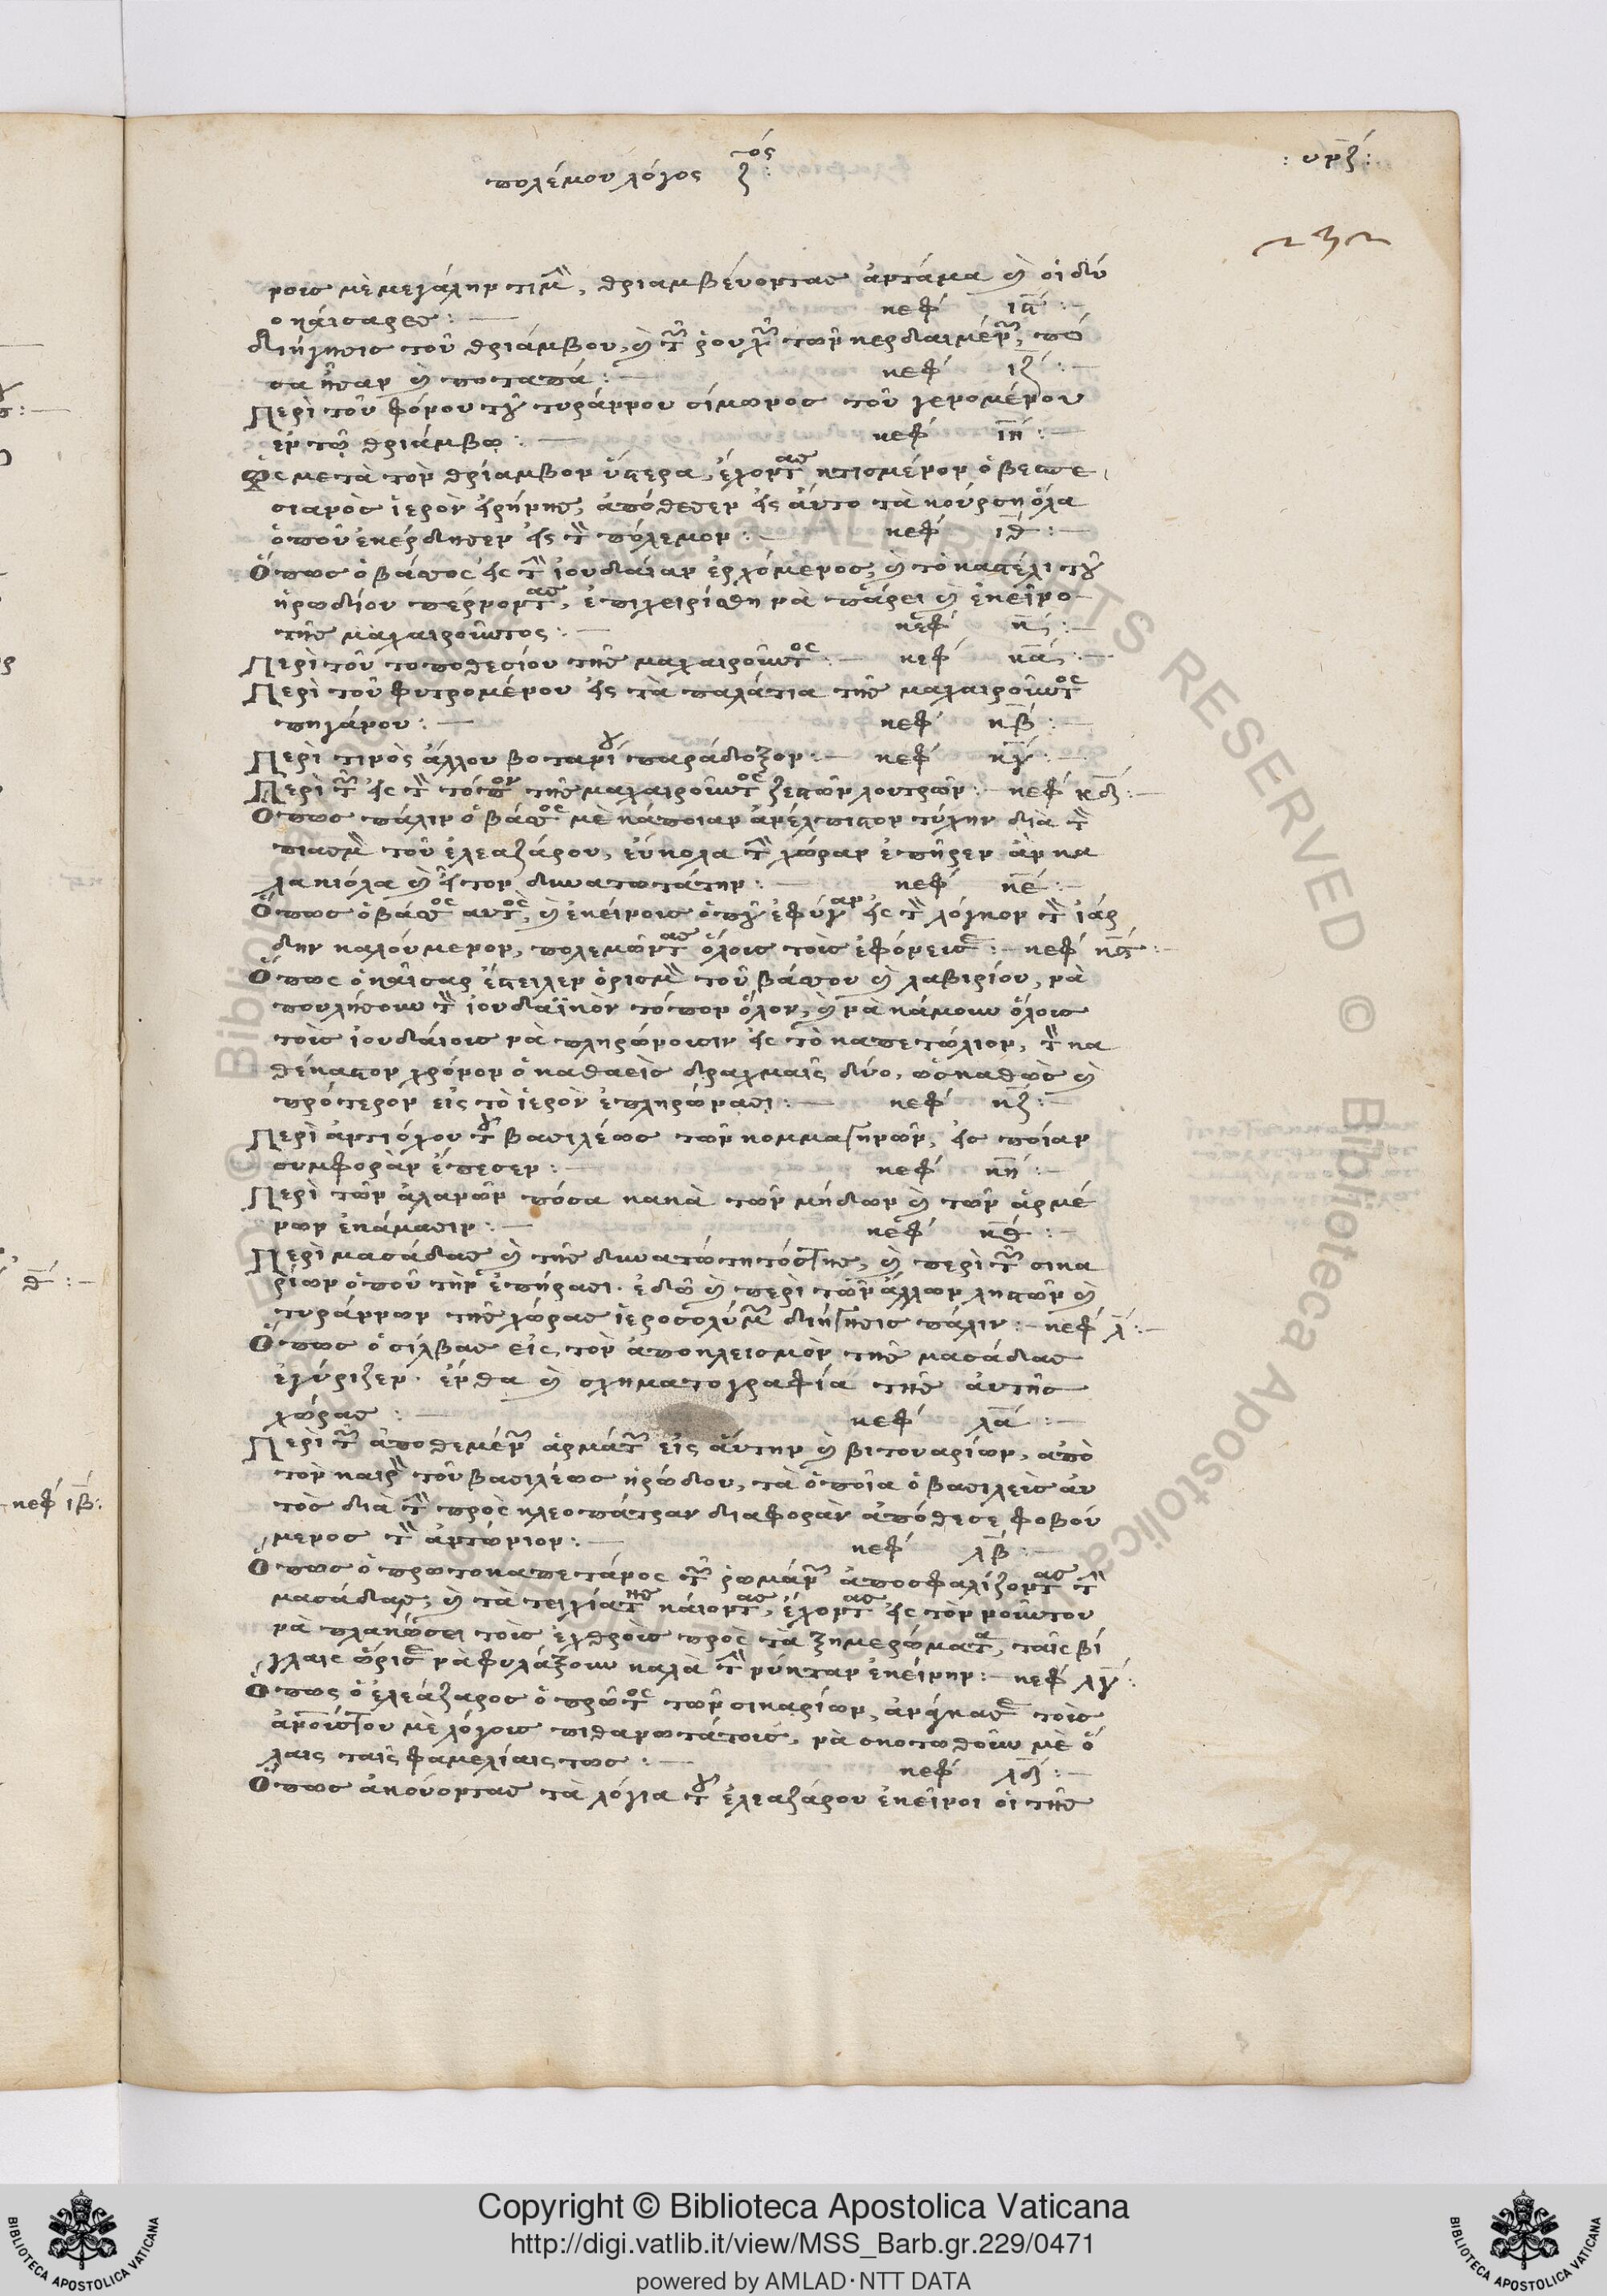 πολέμου λόγος ζ^ος:
: υκζ :
νοις μὲ μεγάλην τιμ̑, θριαμβεύοντας ἀντάμα ϗ οἱ δύ
ο καίσαρες : — κεφ ιϛ : —
διήγησις τοῦ θριάμβου, ϗ τ̑ ῥούχ̑ τῶν κερδαιμέν̑, πό
σα ἦσαν ϗ ποταπά : — κεφ ιζ : —
Περὶ τοῦ φόνου τȣ̑ τυράννου σίμωνος τοῦ γενομένου
ἐν τῷ θριάμβῳ : — κεφ ιη : —
Ὡς μετὰ τὸν θρίαμβον ὕστερα, ἔχοντας κτισμένον ὁ βεσπε
σιανὸς ἱερὸν εἰρήνης, ἀπόθεσεν εἰς αὐτο τὰ κούρση ὅλα
ὁποῦ ἐκέρδησεν εἰς τ̑ πόλεμον : — κεφ ιθ : —
Ὅπως ὁ βάσσος εἰς τ̑ ἰουδαίαν ἐρχόμενος, ϗ τὸ καστέλι τȣ̑
ἡρωδίου πέρνοντας, ἐπιχειρίσθη νὰ πάρει ϗ ἐκεῖνο
τῆς μαχαιροῦντος : — κεφ κ : —
Περὶ τοῦ τοποθεσίου τῆς μαχαιροῦντος : — κεφ κα : —
Περὶ τοῦ φυτρομένου εἰς τὰ παλάτια τῆς μαχαιροῦντος
πηγάνου : — κεφ κβ : —
Περὶ τινὸς ἄλλου βοτανίȣ παράδοξον : — κεφ κγ : —
Περὶ τ̑ εἰς τ̑ τόπον τῆς μαχαιροῦντος ζεστῶν λουτρῶν : — κεφ κδ : —
Ὅπως πάλιν ὁ βάσσος μὲ κάποιαν ἀνέλπιστον τύχην διὰ τ̑
πιασμ̑ τοῦ ἐλεαζάρου, εὔκολα τ̑ χώραν ἐπῆρεν ἂν κα
λα κιόλα ϗ ἦτον δυνατωτάτην : — κεφ κε : —
Ὅπως ὁ βάσσος αυτὸς, ϗ ἐκείνοις ὁπȣ̑ ἐφύγαν εἰς τ̑ λόγκον τ̑ ἰάρ
δην καλούμενον, πολεμῶντας ὅλοις τοὶς ἐφόνεισε : — κεφ κϛ : —
Ὅπως ὁ καῖσαρ ἔστειλεν ὁρισμ̑ τοῦ βάσσου ϗ λαβιρίου, νὰ
πουλήσουν τ̑ ἰουδαϊκὸν τόπον ὅλον, ϗ νὰ κάμουν ὅλοις
τοὶς ἰουδαίοις νὰ πληρώνοισιν εἰς τὸ καπετώλιον, τ̑ κα
θέκαστον χρόνον ὁ καθαεὶς δραχμαῖς δύο, ὡσκαθὼς ϗ
πρότερον εἰς τὸ ἱερὸν ἐπληρώνασι : — κεφ κζ : —
Περὶ ἀντιόχου τȣ̑ βασιλέως τῶν κομμαγηνῶν, εἰς ποίαν
συμφορὰν ἔπεσεν : — κεφ κη : —
Περὶ τῶν ἀλανῶν πόσα κακὰ τῶν μήδων ϗ τῶν ἀρμέ
νων ἐκάμασιν : — κεφ κθ : —
Περὶ μασάδας ϗ τῆς δυνατώτητόστης, ϗ περὶ τ̑ σικα
ρίων ὁποῦ τὴν ἐπήρασι. ἐδῶ ϗ περὶ τῶν ἄλλων ληστῶν ϗ
τυράννων τῆς χώρας ἱεροσολύμ̑ διήγησις πάλιν : — κεφ λ : —
Ὅπως ὁ σίλβας εἰς τὸν ἀποκλεισμὸν τῆς μασάδας
ἐγύριζεν. ἔνθα ϗ σχηματογραφία τῆς ἀυτῆς
χώρας : — κεφ λα : —
Περὶ τ̑ ἀποθεμέν̑ ἁρμάτ̑ εἰς ἄυτην ϗ βιτουαρίων, απὸ
τὸν καιρ̑ τοῦ βασιλέως ἡρώδου, τὰ ὁποῖα ὁ βασιλεὶς ἀυ
τὸς διὰ τ̑ πρὸς κλεοπάτραν διαφορὰν ἀπόθεσε φοβού
μενος τ̑ ἀντώνιον : — κεφ λβ : —
Ὅπως ὁ πρωτοκαπετάνος τ̑ ῥωμάν̑ ἀποσφαλίζοντας τ̑
μασάδαν, ϗ τὰ τειχίατης καίοντας, ἔχοντας εἰς τὸν νοῦντου
νὰ πλακώσει τοὶς ἐχθροὶς πρὸς τὰ ξημερώματα, ταῖς βί
γλαις ὥρισε νὰ φυλάξουν καλὰ τ̑ νύκταν ἐκείνην : — κεφ λγ :
Ὅπως ὁ ἐλεάζαρος ὁ πρῶτος τῶν σικαρίων, ἀνάγκασε τοὶς
ἀνοίστου μὲ λόγοις πιθανωτάτοις, νὰ σκοτωθοῦν μὲ ὅ
λαις ταῖς φαμελίαις τως : — κεφ λδ : —
Ὅπως ἀκούοντας τὰ λόγια τȣ̑ ἐλεαζάρου ἐκεῖνοι οἱ τῆς
θ : —
κεφ ιβ :
Copyright © Biblioteca Apostolica Vaticana
http://digi.vatlib.it/view/MSS_Barb.gr.229/0471
powered by AMLAD·NTT DATA
BIBLIOTECA APOSTOLICA VATICANA
BIBLIOTECA APOSTOLICA VATICANA